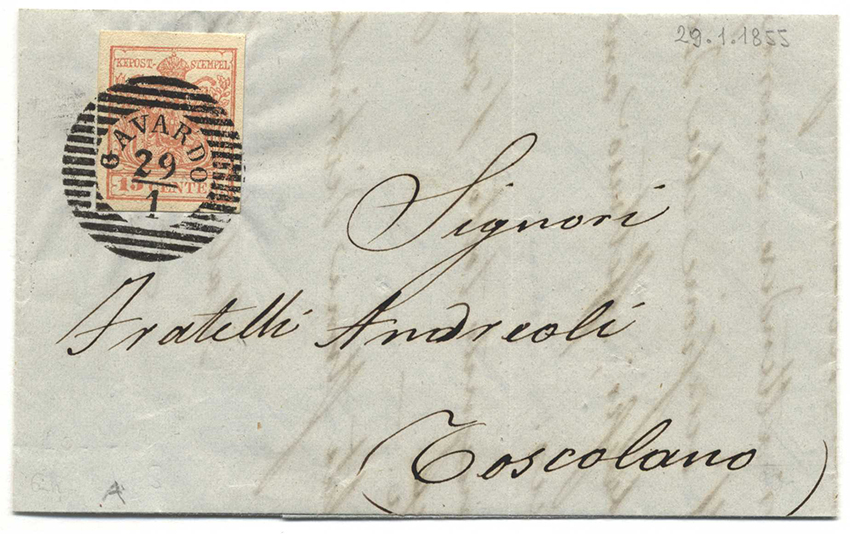 29.1.1855
KKPOST-STEMPEL
GAVARDO
29
1
15 CENTES
Signori
Fratelli Andreoli
(Toscolano)
A